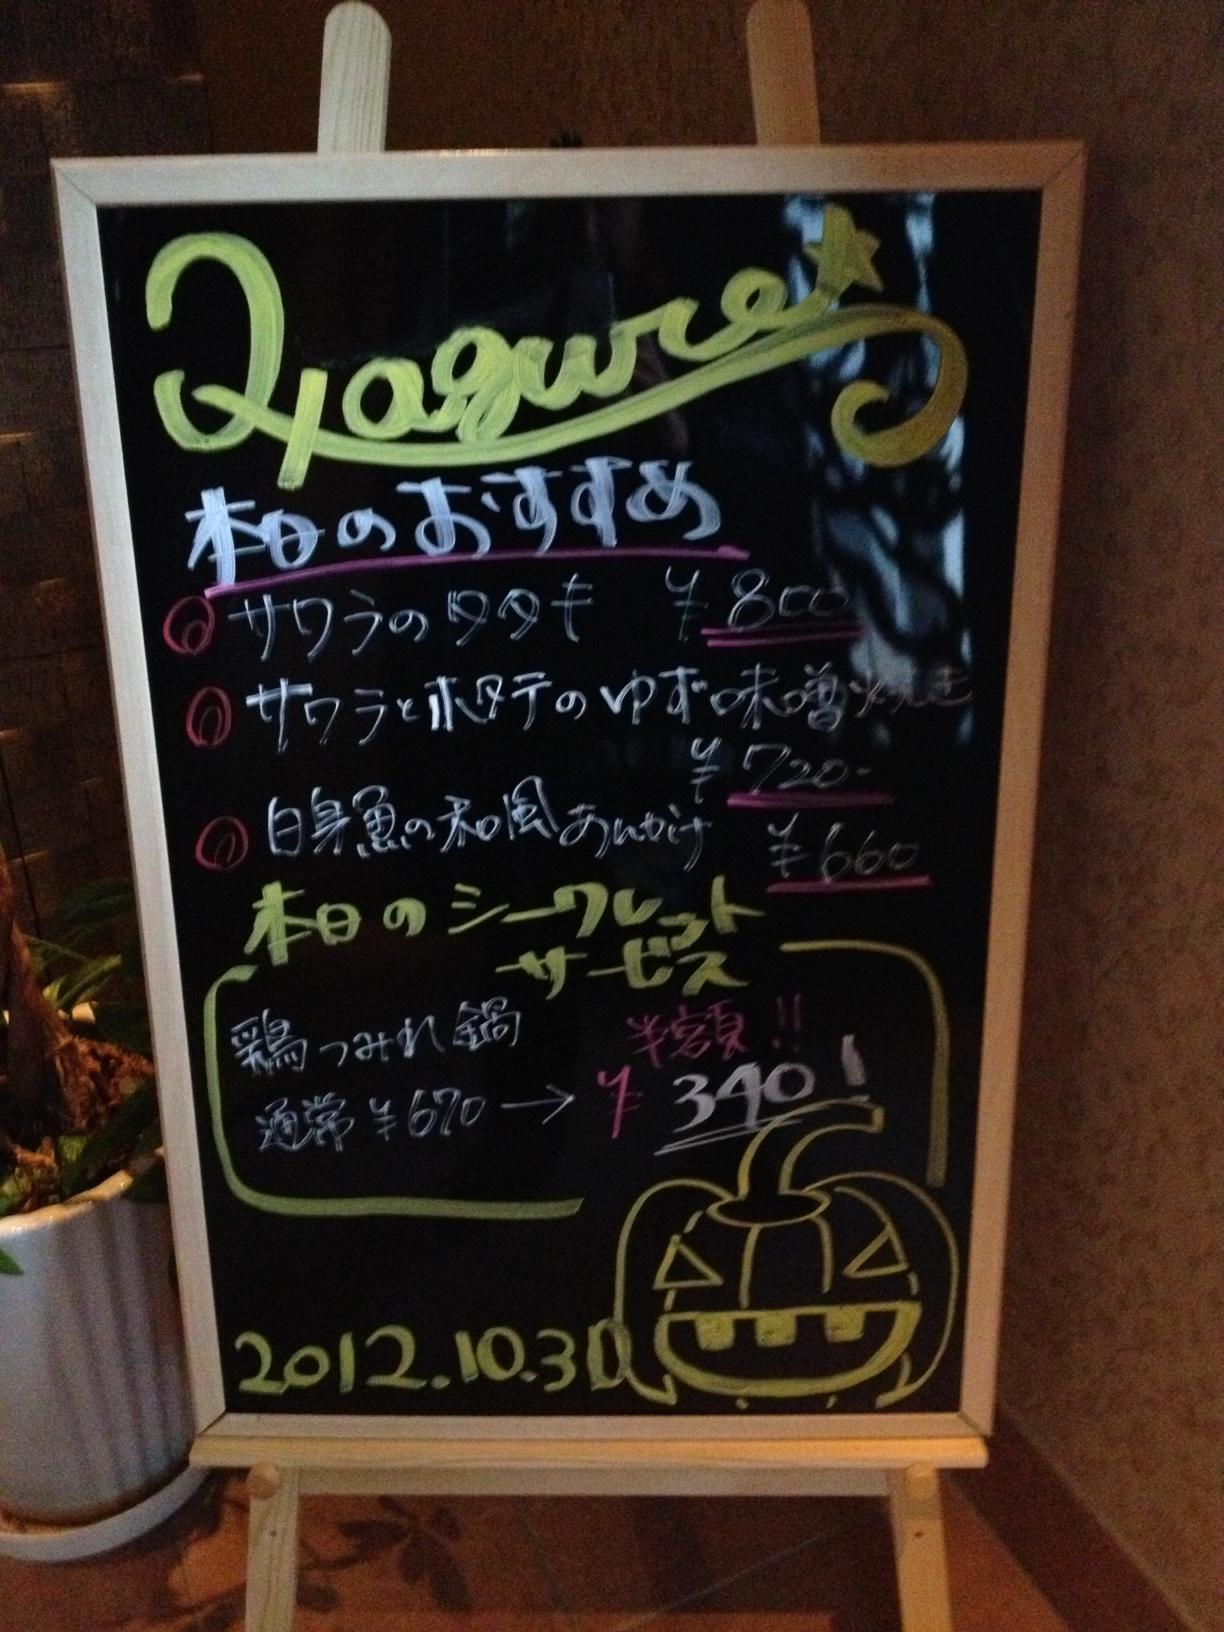 Yagure
本日のおすすめ
サワラのタタキ ¥800
サワラとホタテのゆず味噌焼き
¥720-
白身魚の和風あんかけ ¥660
本日のシークレット
サービス
鶏つみれ鍋 半額!!
通常¥670→¥340!
2012.10.30